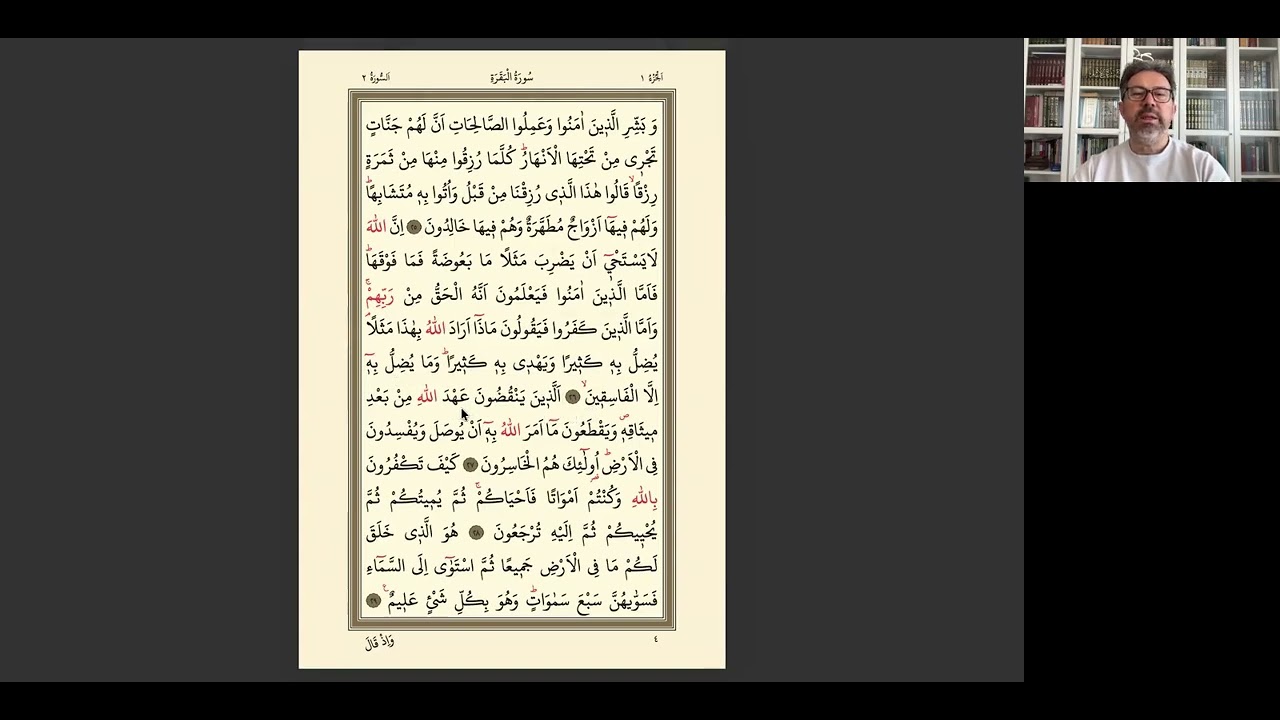 اَلْجُزْءُ ١ سُورَةُ الْبَقَرَةِ اَلسُّورَةُ ٢
وَ بَشِّرِ الَّذ۪ينَ اٰمَنُوا وَعَمِلُوا الصَّالِحَاتِ اَنَّ لَهُمْ جَنَّاتٍ
تَجْر۪ى مِنْ تَحْتِهَا الْاَنْهَارُۜ كُلَّمَا رُزِقُوا مِنْهَا مِنْ ثَمَرَةٍ
رِزْقًاۙ قَالُوا هٰذَا الَّذ۪ى رُزِقْنَا مِنْ قَبْلُ وَاُتُوا بِه۪ مُتَشَابِهًاۜ
وَلَهُمْ ف۪يهَٓا اَزْوَاجٌ مُطَهَّرَةٌ وَهُمْ ف۪يهَا خَالِدُونَ ٢٥ اِنَّ اللّٰهَ
لَايَسْتَحْي۪ٓ اَنْ يَضْرِبَ مَثَلًا مَا بَعُوضَةً فَمَا فَوْقَهَاۜ
فَاَمَّا الَّذ۪ينَ اٰمَنُوا فَيَعْلَمُونَ اَنَّهُ الْحَقُّ مِنْ رَبِّهِمْۚ
وَاَمَّا الَّذ۪ينَ كَفَرُوا فَيَقُولُونَ مَاذَٓا اَرَادَ اللّٰهُ بِهٰذَا مَثَلًاۢ
يُضِلُّ بِه۪ كَث۪يرًا وَيَهْد۪ى بِه۪ كَث۪يرًاۜ وَمَا يُضِلُّ بِه۪ٓ
اِلَّا الْفَاسِق۪ينَۙ ٢٦ اَلَّذ۪ينَ يَنْقُضُونَ عَهْدَ اللّٰهِ مِنْ بَعْدِ
م۪يثَاقِه۪ۖ وَيَقْطَعُونَ مَٓا اَمَرَ اللّٰهُ بِه۪ٓ اَنْ يُوصَلَ وَيُفْسِدُونَ
فِى الْاَرْضِۜ اُو۬لٰٓئِكَ هُمُ الْخَاسِرُونَ ٢٧ كَيْفَ تَكْفُرُونَ
بِاللّٰهِ وَكُنْتُمْ اَمْوَاتًا فَاَحْيَاكُمْۚ ثُمَّ يُم۪يتُكُمْ ثُمَّ
يُحْي۪يكُمْ ثُمَّ اِلَيْهِ تُرْجَعُونَ ٢٨ هُوَ الَّذ۪ى خَلَقَ
لَكُمْ مَا فِى الْاَرْضِ جَم۪يعًا ثُمَّ اسْتَوٰٓى اِلَى السَّمَٓاءِ
فَسَوّٰيهُنَّ سَبْعَ سَمٰوَاتٍۜ وَهُوَ بِكُلِّ شَيْئٍ عَل۪يمٌ۟ ٢٩
٤ وَاِذْ قَالَ